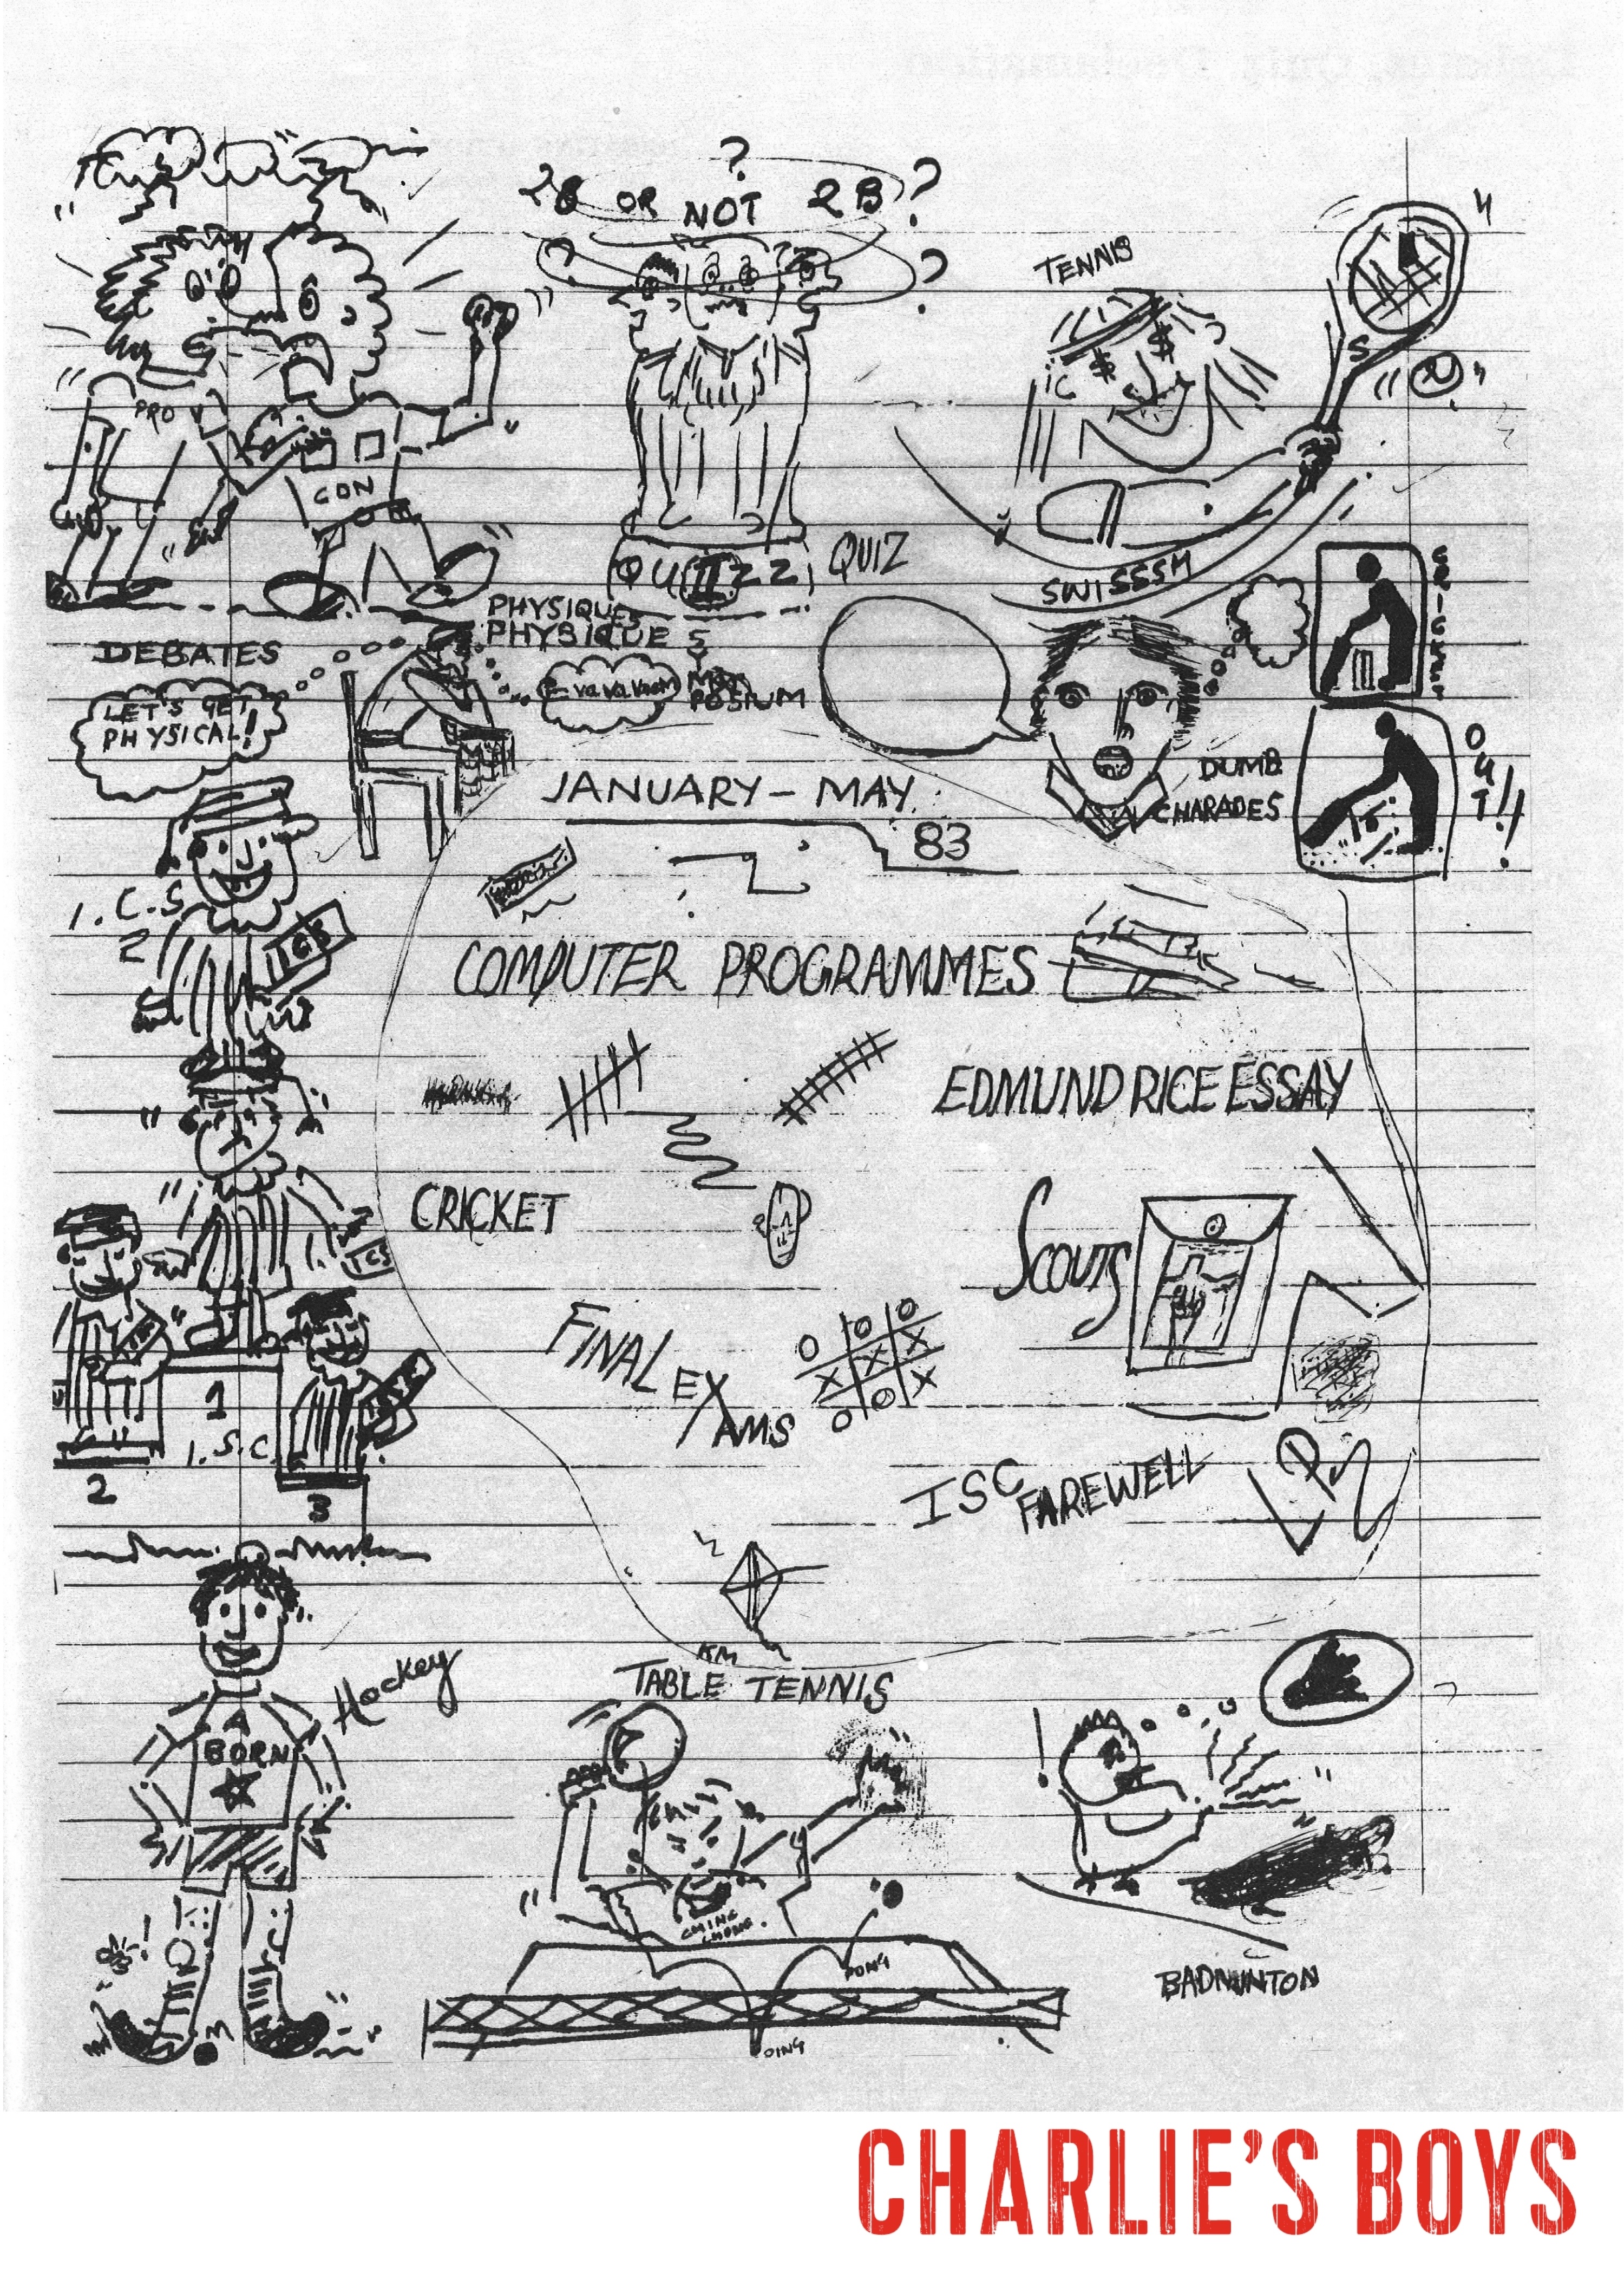 2B OR NOT 2B ?
?
?
TENNIS
$ $
S
PRO
CON
QUIZZ
QUIZ
SWISSSH
DEBATES
PHYSIQUES
PHYSIQUE
SY
POSIUM
VA VA VOOM
LET'S GET
PHYSICAL!
CRICKET
OUT!!
DUMB
CHARADES
JANUARY - MAY
83
I.C.S
2
ICS
COMPUTER PROGRAMMES
EDMUND RICE ESSAY
CRICKET
ICS
SCOUTS
FINAL EXAMS
O O O
X X X
O O X
1
I.S.C.
2
3
ISC FAREWELL
Hockey
A
BORN
TABLE TENNIS
CHING
CHONG
PONG
OING
BADMINTON
CHARLIE'S BOYS